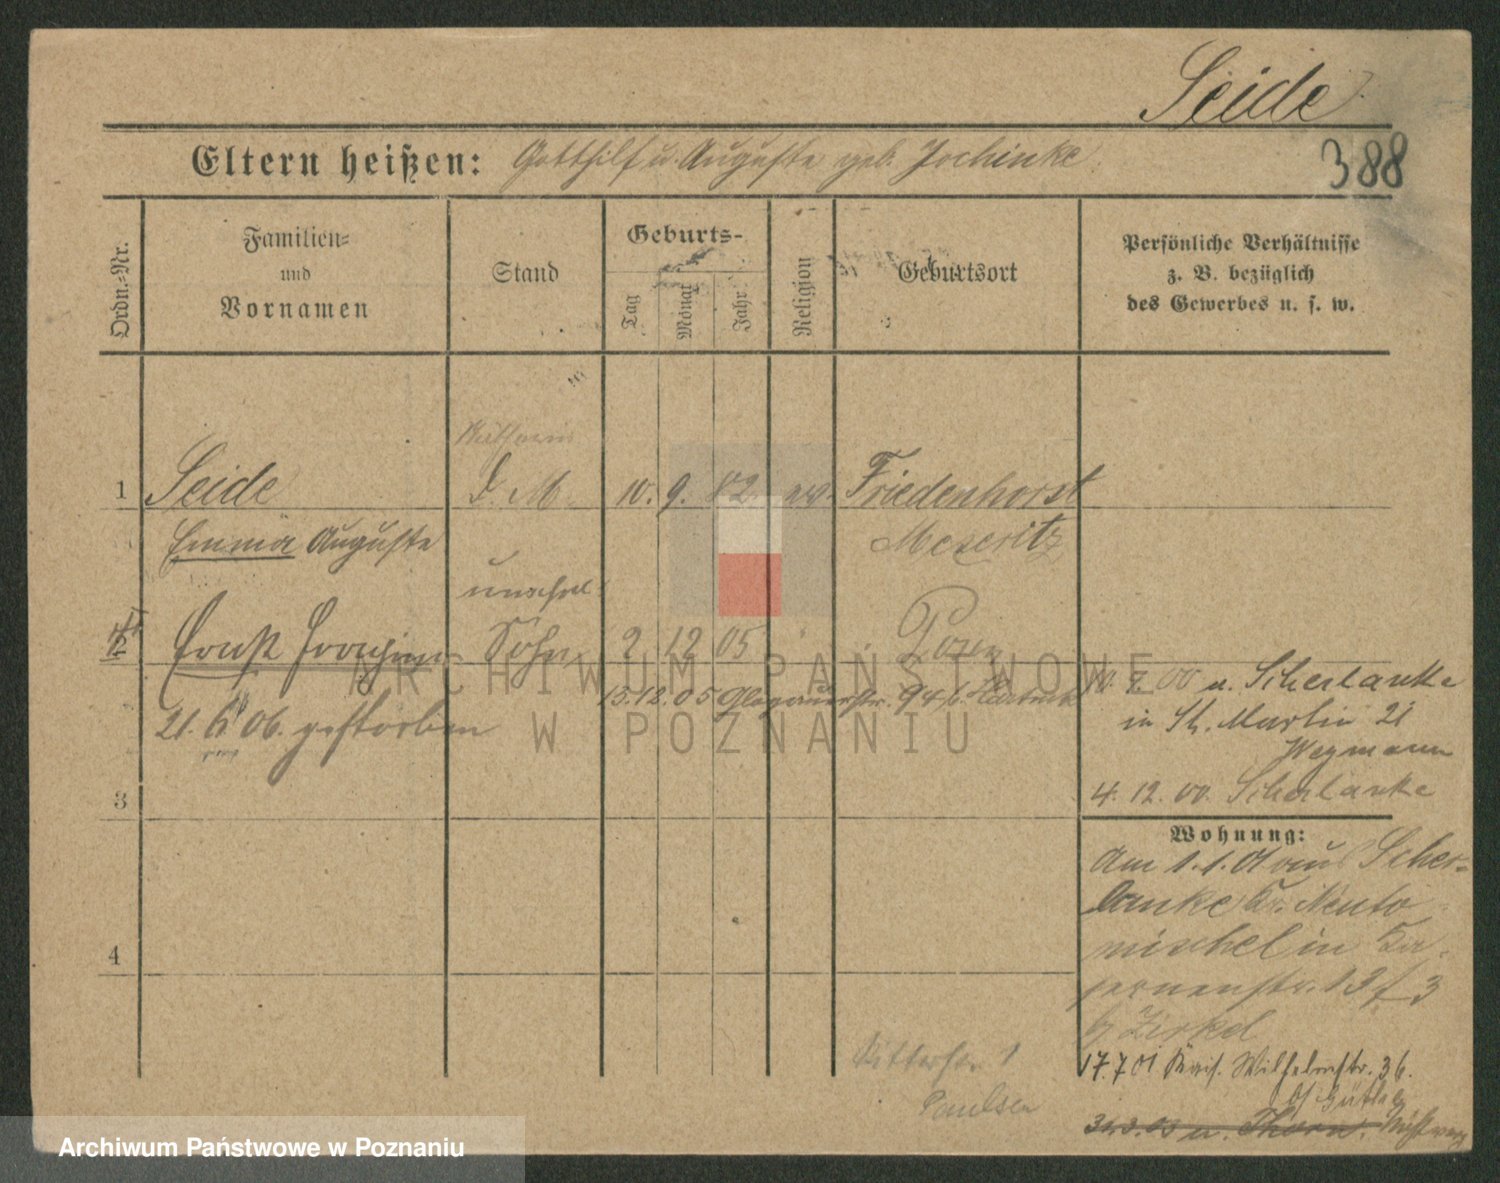 Seide
388
Eltern heißen: Gotthilf u. Auguste geb. Jochinke
Ordn.-Nr.
Familien-
und
Vornamen
Stand
Geburts-
Tag
Monat
Jahr
Religion
Geburtsort
Persönliche Verhältnisse
z. B. bezüglich
des Gewerbes u. s. w.
1 Seide D. M. 10. 9. 82 ev. Friedenhorst
Emma Auguste Meseritz
unehel.
2 Ernst Sohn 2 12 05 Posen
13.12.05 Glogauerstr. 94 b.
21. 6 06. gestorben
u. Scherlanke
in St. Martin 21
Wegmann
3
4. 12. 00. Scherlanke
Wohnung:
Am 1.1.01 aus Scher-
lanke Kr. Neuto-
mischel in Ka-
sernenstr. 13 f 3
b/ Zirkel
4
Ritterstr. 1
Paulsen
17.7 01 Kais. Wilhelmstr. 36.
30.3.03 u. Thorn.
ARCHIWUM PAŃSTWOWE
W POZNANIU
Archiwum Państwowe w Poznaniu